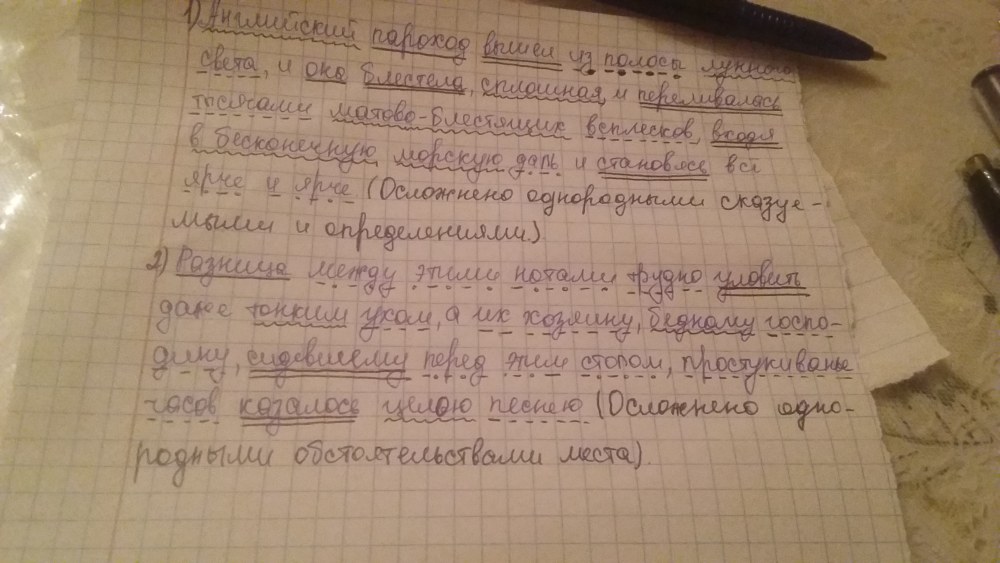 1) Английский пароход вышел из полосы лунного
света, и она блестела, сплошная, и переливалась
тысячами матово-блестящих всплесков, входя
в бесконечную морскую даль и становясь всё
ярче и ярче (Осложнено однородными сказуе-
мыми и определениями.)
2) Разница между этими нотами трудно уловить
даже тонким ухом, а их хозяину, бедному госпо-
дину, сидевшему перед этим столом, простукиванье
часов казалось целою песнею (Осложнено одно-
родными обстоятельствами места).